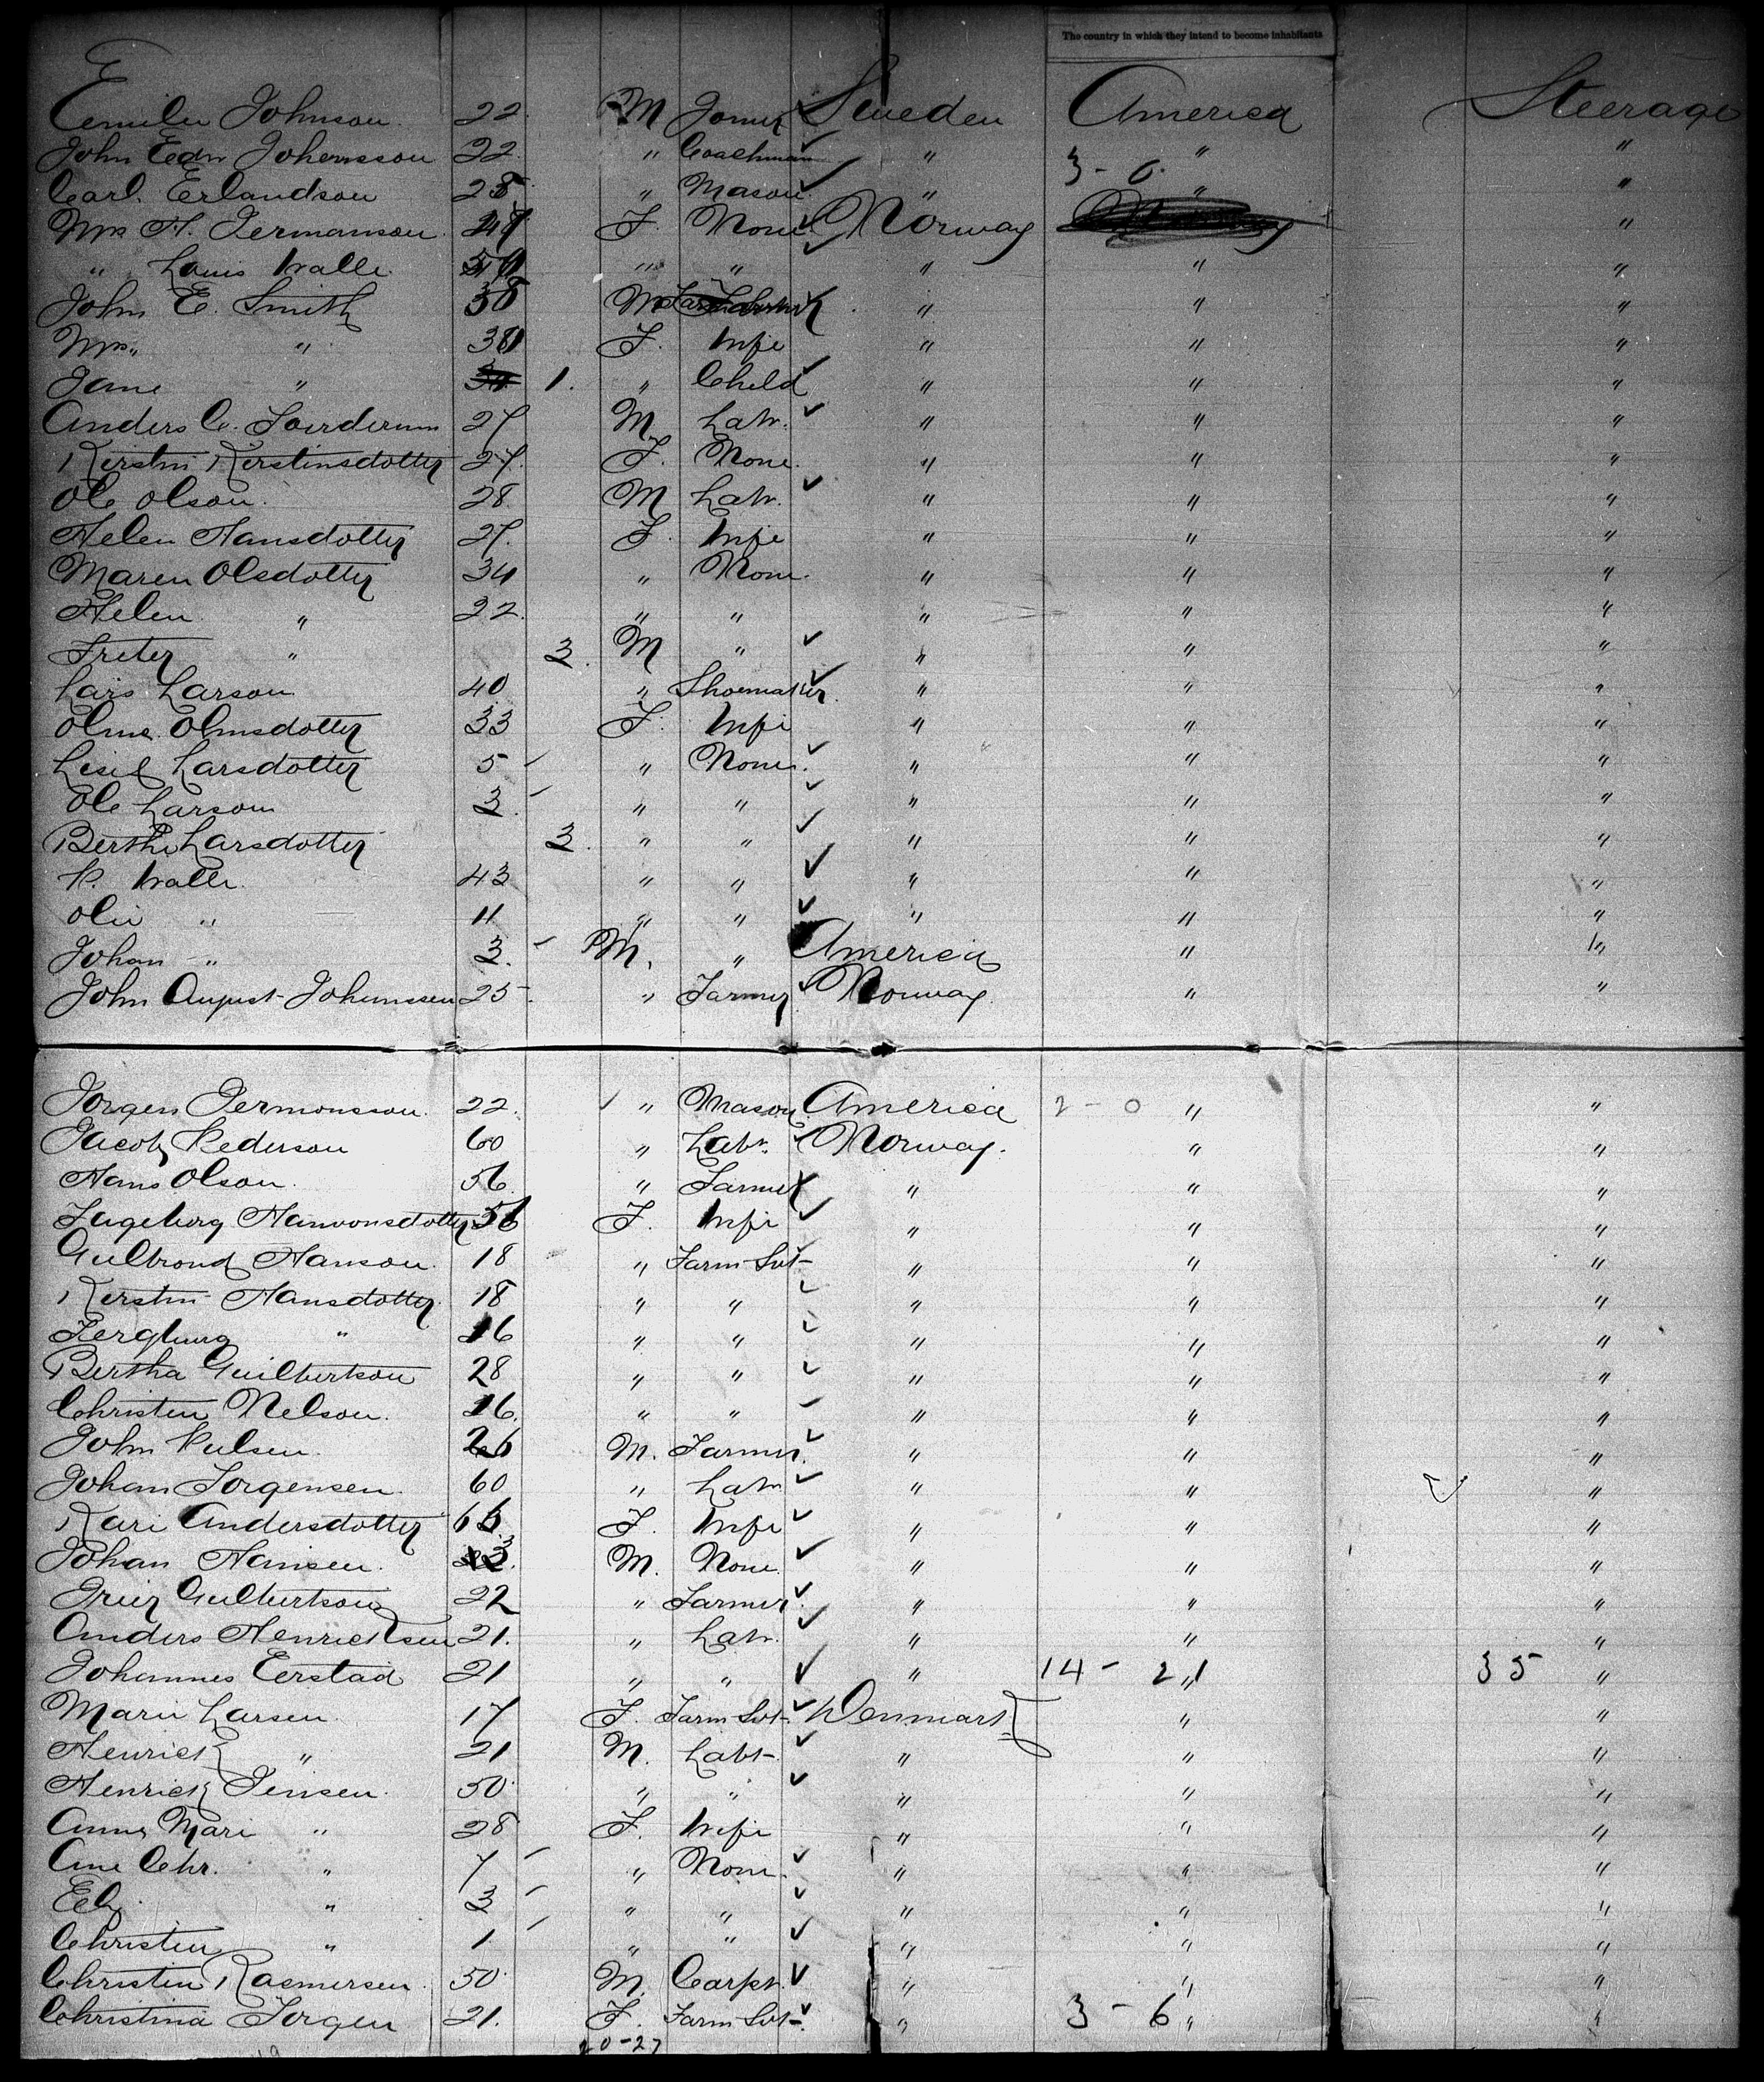 The country in which they intend to become inhabitants
Johnson 22 M Sweden America Steerage
John Edw 22 " Coachman " " "
3 - 0
Carl. Erlandson " Mason " " "
Mrs H. Jermanson F. None Norway "
" Louis Walle " " " " "
John E. Smith 38 M " " "
Mrs " " F. Wife " " "
Jane " 1. " Child " " "
Anders C. 27 M. Labr. " " "
Kerstin Kerstinsdotter 27. F. None. " " "
Ole Olson. 28. M Labr. " " "
Helen Hansdotter 27. F. Wife " " "
Maren Olsdotter 34 " None. " " "
Helen " 22. " " " " "
" 3. M " " " "
Lars Larson 40 " Shoemaker. " " "
Olmsdotter 33 F. Wife " " "
Larsdotter 5 " None. " " "
Ole Larson 3. " " " " "
Berthe Larsdotter 3. " " " " "
P. Walle. 43 " " " " "
" 11 " " " " "
Johan " 3. M. " America " "
John August 25. " Farmer Norway " "
Jorgen Jermonsson. 22. " Mason America 2 - 0 " "
Jacob Pederson 60 " Labr. Norway. " "
Hans Olson. 56 " Farmer " " "
F. Wife " " "
Hanson. 18 " Farm Svt " " "
Kerstin Hansdotter. 18 " " " " "
" 16 " " " " "
Bertha 28 " " " " "
Christen Nelson. 16. " " " " "
John 26 M. Farmer. " " "
Johan Jorgensen. 60 " Labr " " "
Kari Andersdotter F. Wife " " "
Johan Hansen. M. None. " " "
22 " Farmer. " " "
Anders Henricksen 21. " Labr. " " "
Johannes Eerstad 21 " " " 14 - 21 " 35 "
Marie Larsen. 17 F. Farm Svt. Denmark " "
Henrick " 21 M. Labr " " "
Henrick Jensen. 50. " " " " "
Anne Mari " 28 F. Wife " " "
Ane Chr. " 7 " None. " " "
" 3 " " " " "
Christen " 1 " " " " "
Christen Rasmersen. 50. M. Carpt. " " "
Christina Jorgen 21. F. Farm Svt. " 3 - 6 " "
20-27